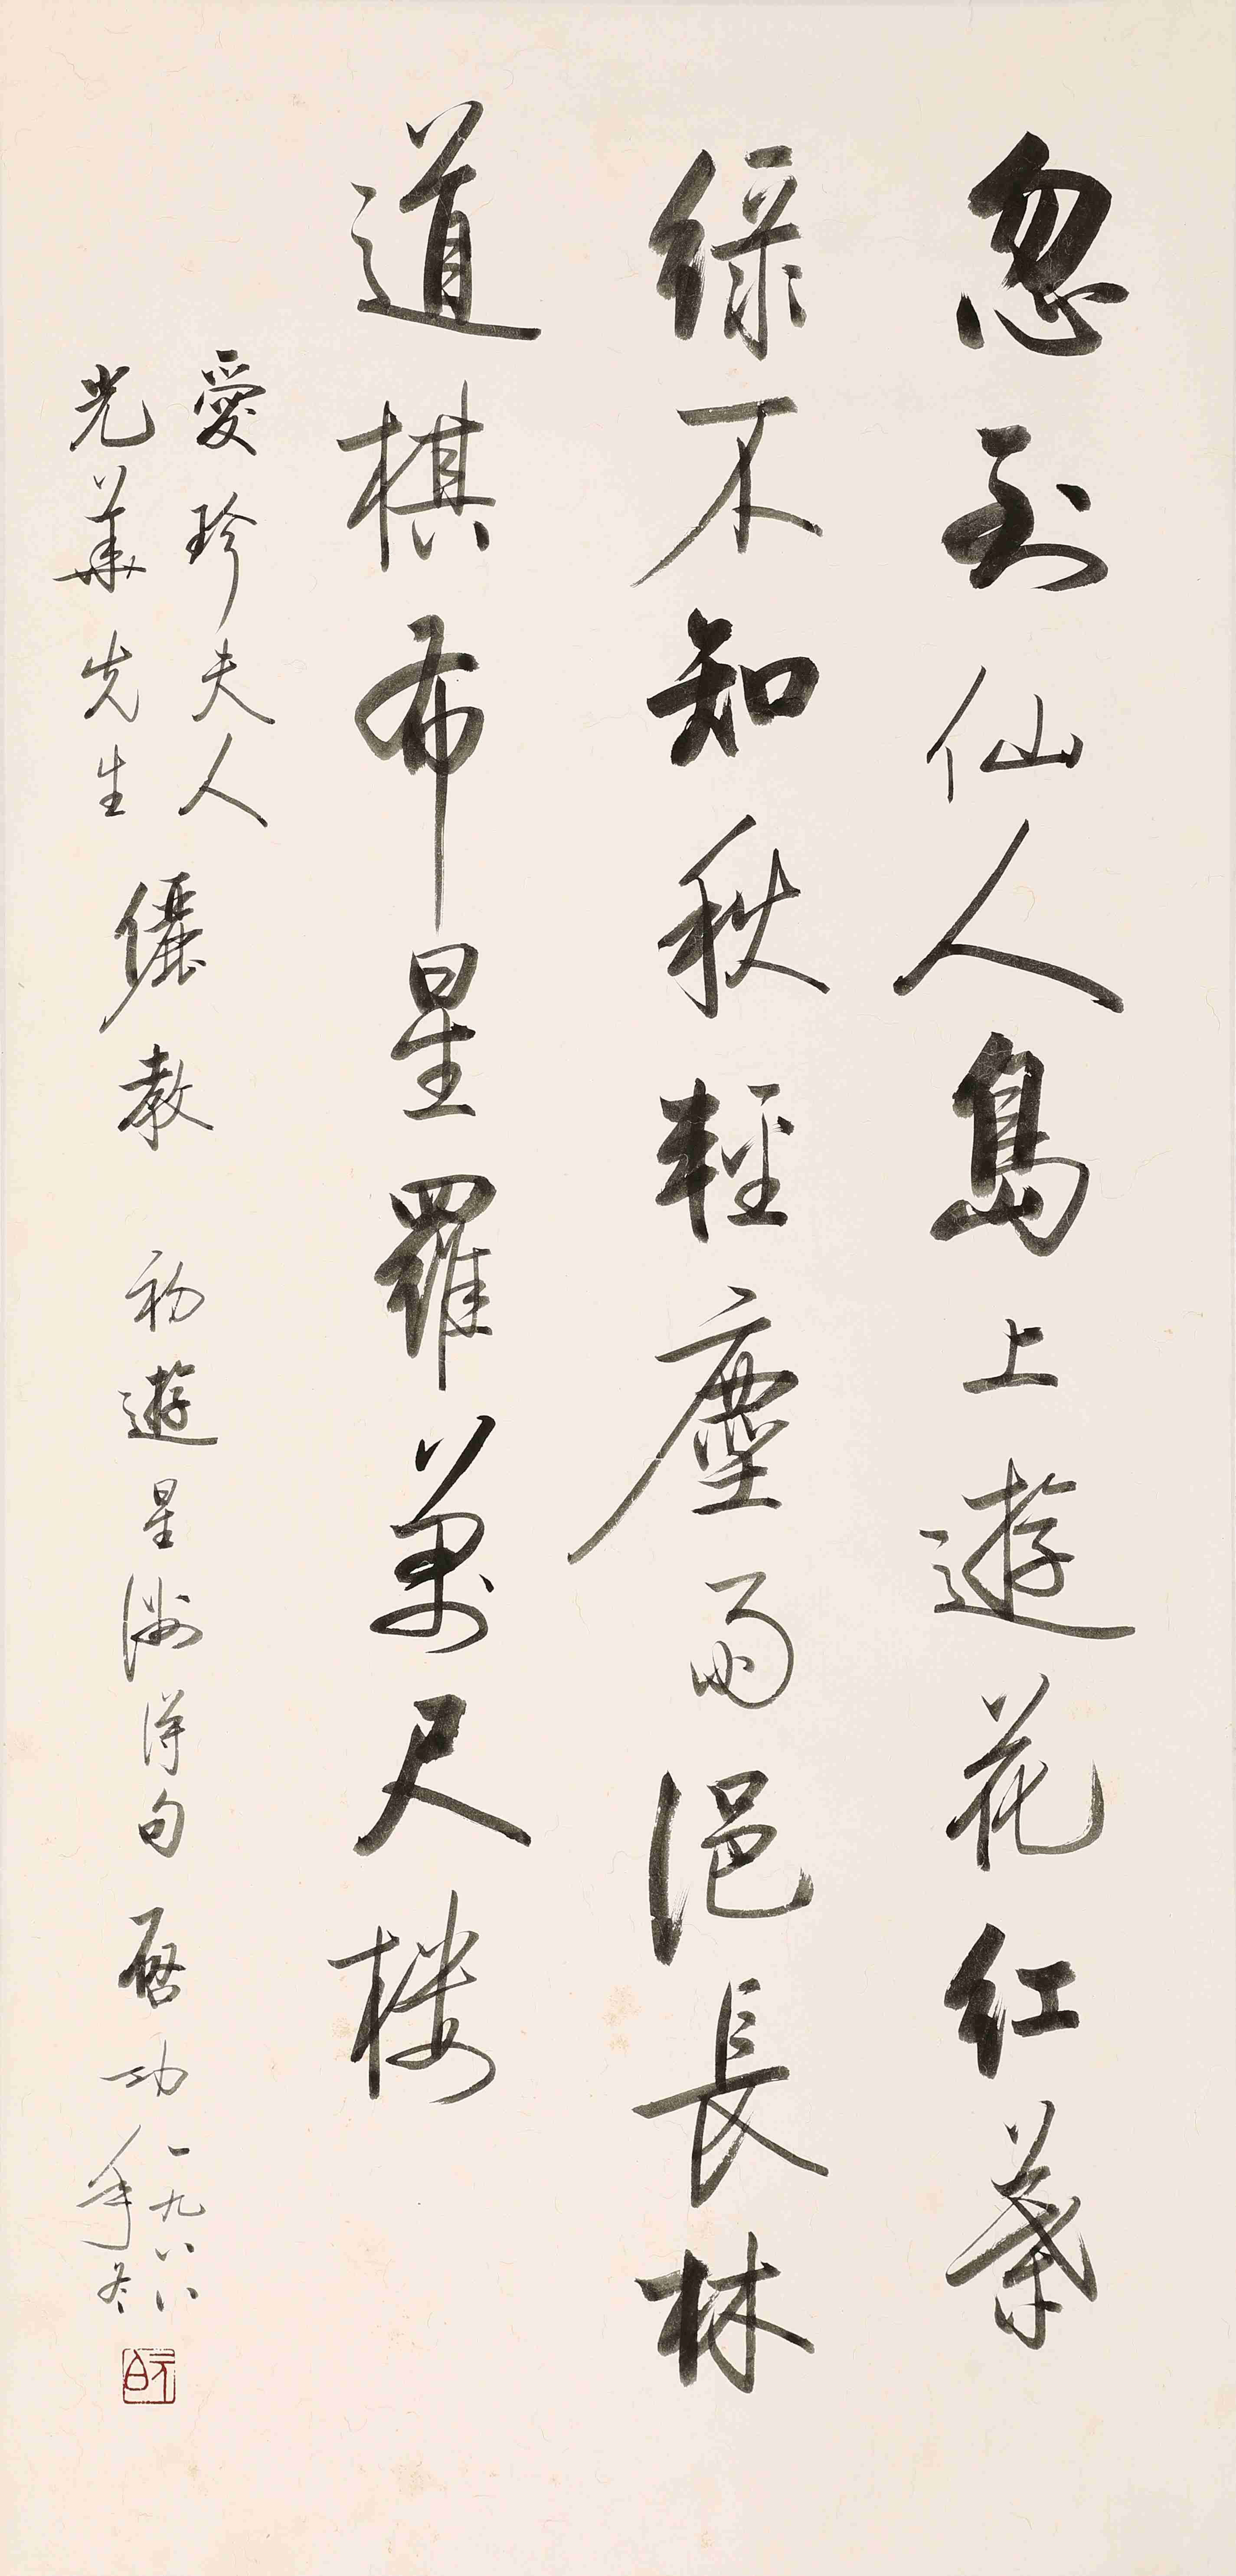 忽到仙人島上遊花紅葉
綠不知秋輕塵雨浥長林
道棋布星羅萬尺樓
愛珍夫人
光華先生
儷教 初遊星洲得句 啟功 一九八八
年冬